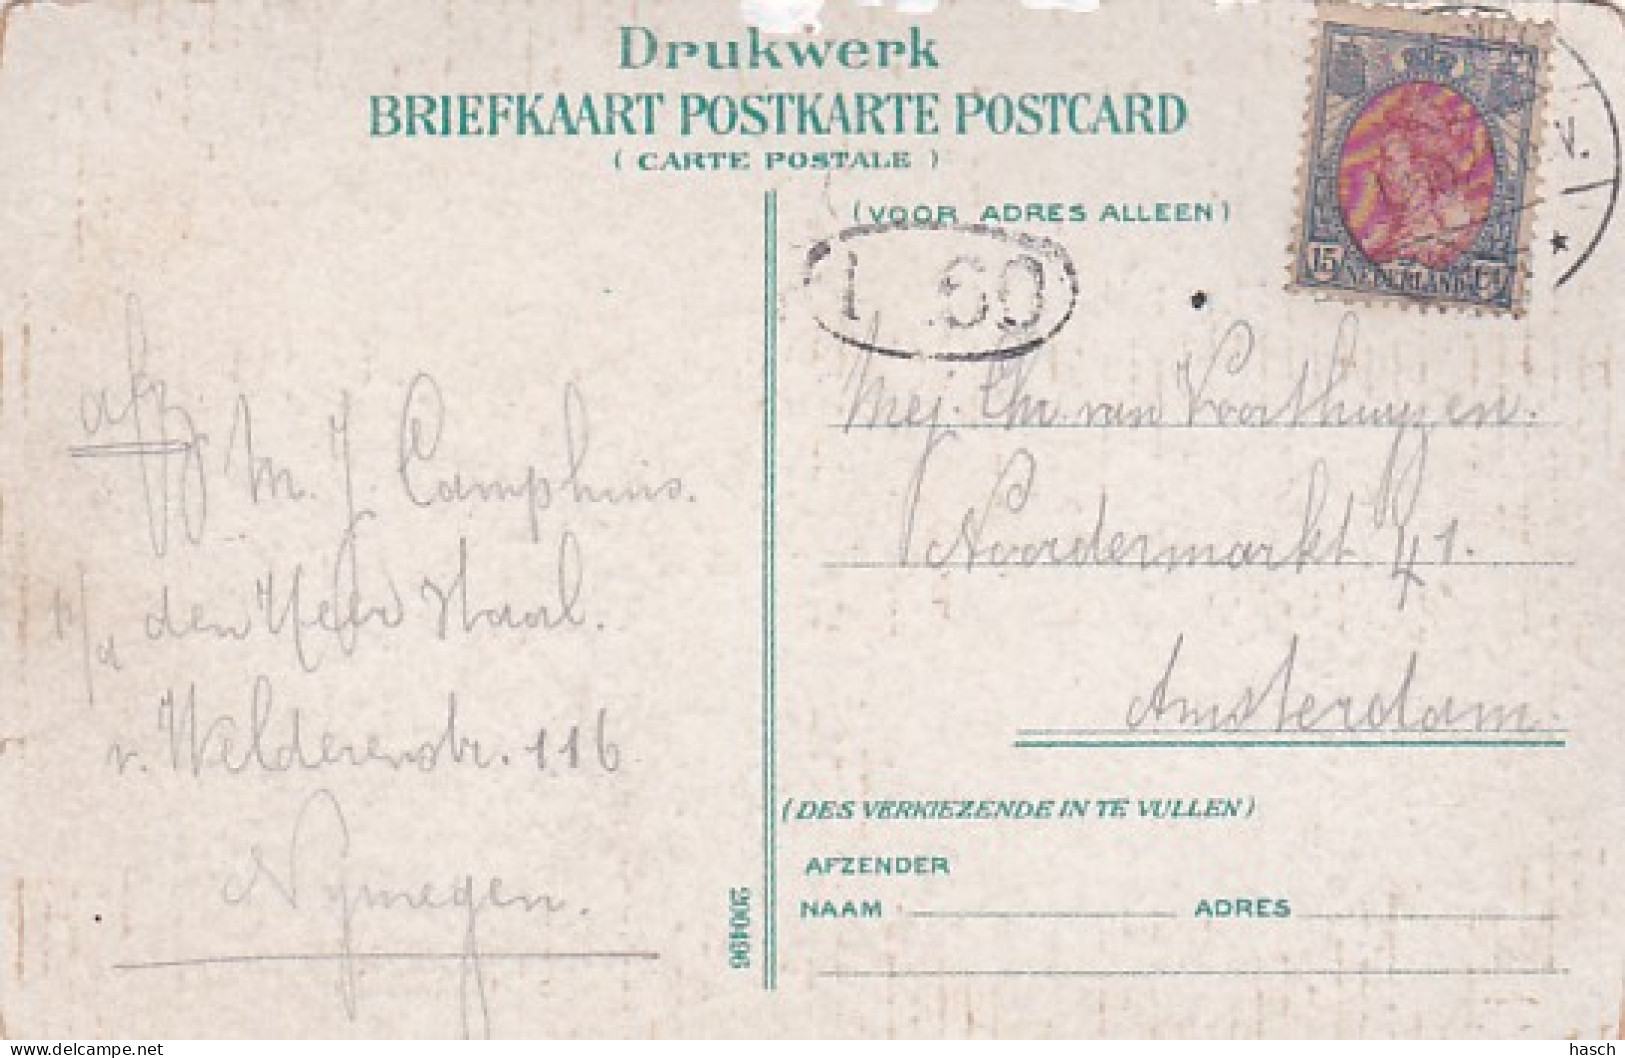 Drukwerk
BRIEFKAART POSTKARTE POSTCARD
( CARTE POSTALE )
(VOOR ADRES ALLEEN)
V.
15 NEDERLAND Ct
1 60
afz
M. J. Camphuis.
p/a den Heer Staal.
v. Welderenstr. 116
Nymegen.
Mej. Chr. van Voorthuyzen.
Noordermarkt 41.
Amsterdam.
(DES VERKIEZENDE IN TE VULLEN)
AFZENDER
NAAM ADRES
200496
delcampe.net
hasch